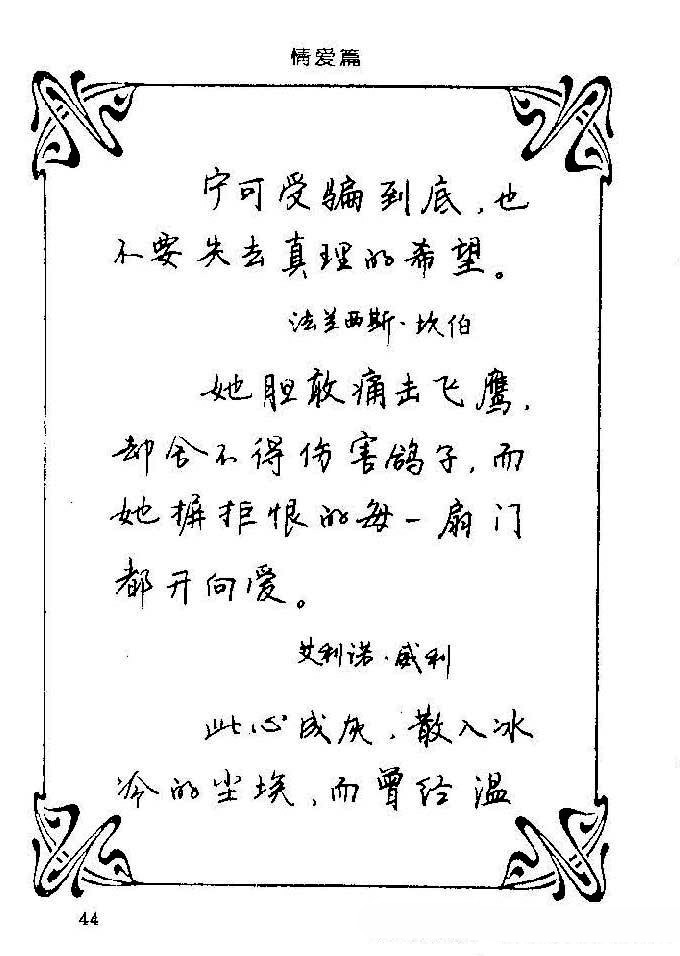 情爱篇
宁可受骗到底，也
不要失去真理的希望。
法兰西斯·坎伯
她胆敢痛击飞鹰，
却舍不得伤害鸽子，而
她摒拒恨的每一扇门
都开向爱。
艾利诺·威利
此心成灰，散入冰
冷的尘埃，而曾经温
44